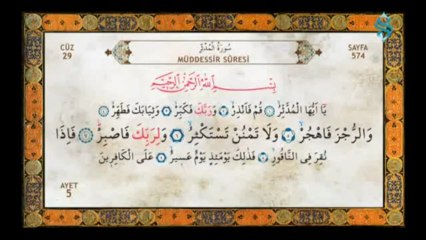 CÜZ
29
سُورَةُ الْمُدَّثِّرِ
MÜDDESSİR SÛRESİ
SAYFA
574
بِسْمِ اللّٰهِ الرَّحْمٰنِ الرَّحِيمِ
يَا اَيُّهَا الْمُدَّثِّرُ ۙ ﴿١﴾ قُمْ فَاَنْذِرْ ۙ ﴿٢﴾ وَرَبَّكَ فَكَبِّرْ ۙ ﴿٣﴾ وَثِيَابَكَ فَطَهِّرْ ۙ ﴿٤﴾
وَالرُّجْزَ فَاهْجُرْ ۙ ﴿٥﴾ وَلَا تَمْنُنْ تَسْتَكْثِرُ ۙ ﴿٦﴾ وَلِرَبِّكَ فَاصْبِرْ ۜ ﴿٧﴾ فَاِذَا
نُقِرَ فِي النَّاقُورِ ۙ ﴿٨﴾ فَذٰلِكَ يَوْمَئِذٍ يَوْمٌ عَسِيرٌ ۙ ﴿٩﴾ عَلَى الْكَافِرِينَ
AYET
5